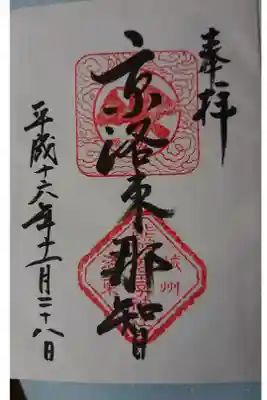 奉拝
京洛東那智
平成十六年十一月二十八日